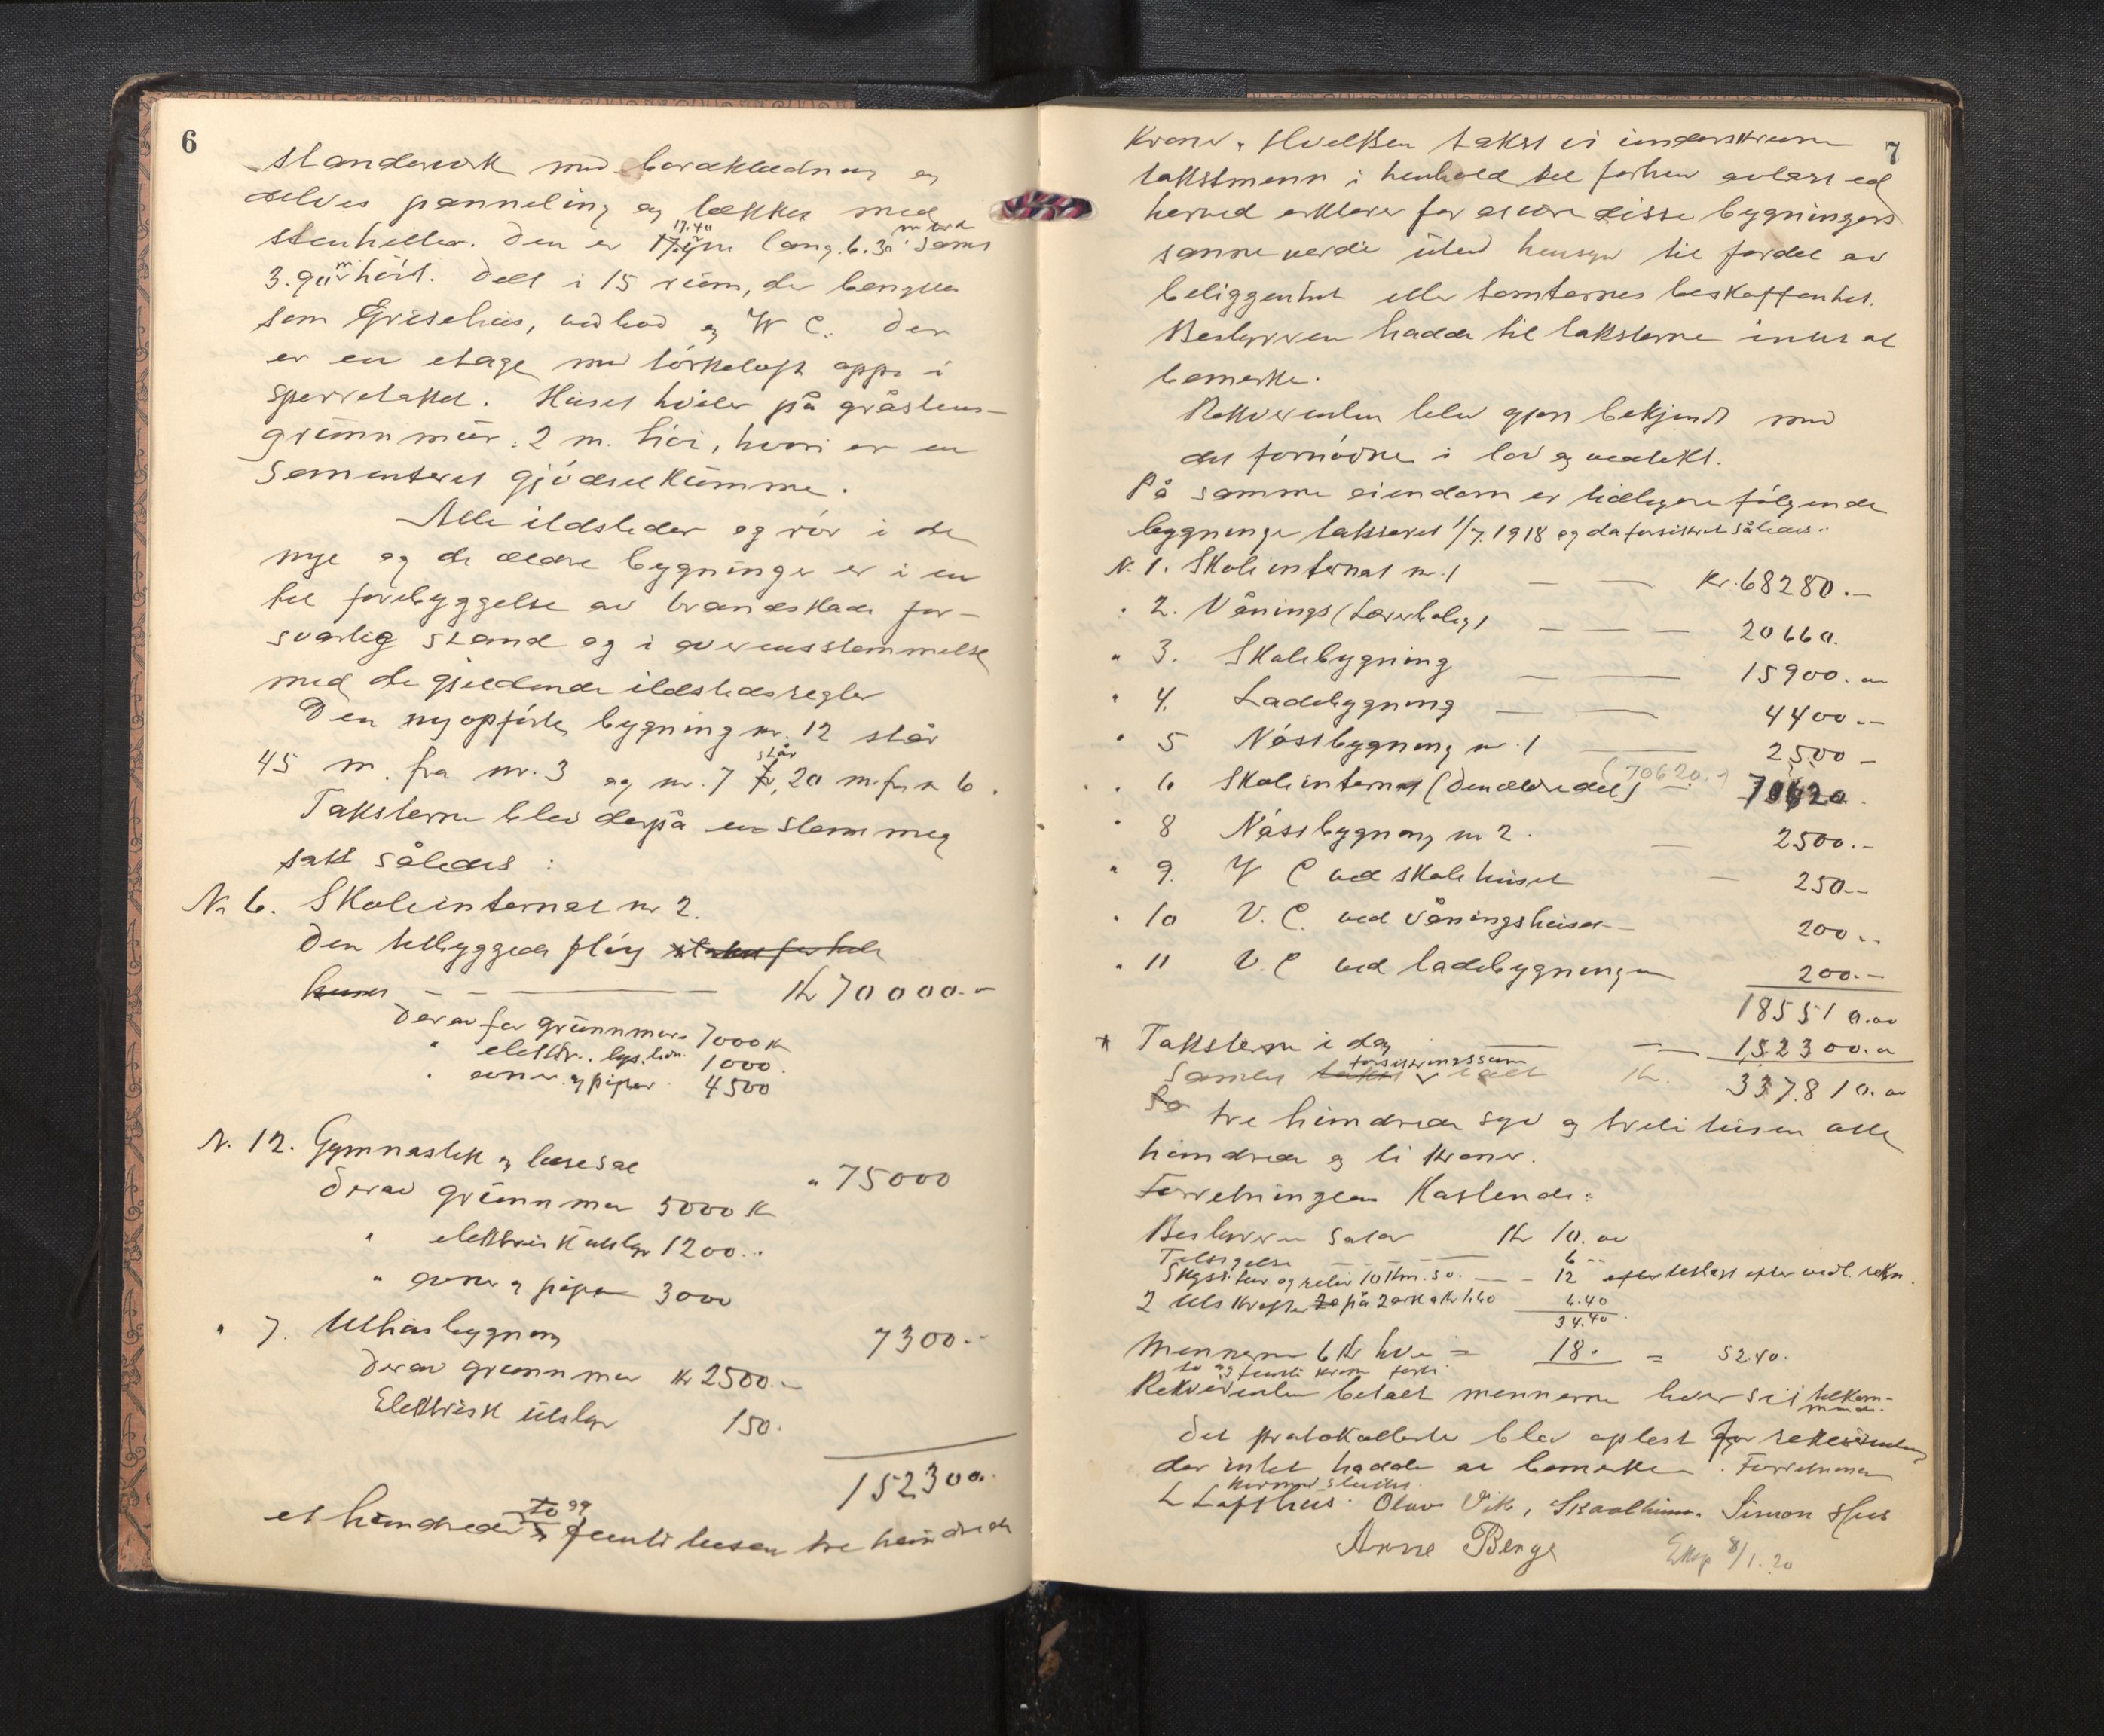 6
standverk med bordklædning og
delvis panneling og tækket med
17.40 m bred
stenheller. Den er lang. 6.30 samt
3.90 m høit. Delt i 15 rum, der benyttes
som Grisehus, vedbod og W C. Der
er en etage med törkeloft oppe i
sperretaket. Huset hviler på gråstens-
grunnmur: 2 m. höi, hvori er en
sementeret gjödselkumme.
Alle ildsteder og rör i de
nye og de ældre bygninger er i en
til forebyggelse av brandskade for-
svarlig stand og i overensstemmelse
med de gjeldende ildstedsregler
Den nyopförte bygning nr. 12 står
står
45 m. fra nr. 3 og nr. 7 20 m. fra n 6.
Taksterne blev derpå enstemmig
satt således :
N. 6. Skoleinternat nr 2.
Den tilbyggede flöy
huset — — — Kr 70000.-
Derav for grunnmur 7000 Kr
" elektr. lys. 1000.
" ovner og piper 4500
N. 12. Gymnastik og læsesal " 75000
Derav grunnmur 5000 Kr
" elektrisk utstyr 1200..
" ovner og piper 3000
" 7. Uthusbygning 7300.-
Derav grunnmur Kr 2500.-
Elektrisk utstyr 150.
152300.
to og
et hundrede femti tusen tre hundrede
7
Kroner. Hvilken takst vi underskrevne
takstmenn i henhold til forhen avlagt ed
herved erklærer for at være disse bygningers
sanne verdi uten hensyn til fordel av
beliggenhet eller tomternes beskaffenhet.
Bestyreren hadde til taksterne intet at
bemerke.
Rekvirenten blev gjort bekjendt med
det fornödne i lov og vedtekt.
På samme eiendom er tidligere fölgende
bygninger takseret 1/7. 1918 og da forsikret således:
N. 1. Skoleinternat nr. 1 — — Kr. 68280.-
. 2. Vånings (Lærerbolig) — — — 20660.
" 3. Skolebygning — — 15900.
" 4. Ladebygning — — 4400.-
" 5 Nöstbygning nr. 1 — 2500 -
(70620.-)
" 6 Skoleinternat (den ældre del) 70620.
" 8 Nöstbygning nr 2. — 2500.-
" 9. W C ved skolehuset — 250.-
" 10 V. C. ved Våningshuset - 200..
" 11 V. C ved ladebygningen 200.-
185510.00
* Taksterne i dag — — 152300.
forsikringssum
Samlet takst ialt Kr. 337.810.
tre hundrede syv og treti tusen otte
hundrede og ti kroner.
Forretningens Kostende:
Bestyreren salær Kr 10.00
Tilsigelse — — — 6 --
Skyss tur og retur 10 Km. — - 12 efter vedl. rekn.
2 Utskrifter på 2 ark a Kr 1.60 6.40
34.40
Mennene 6 Kr hver = 18. = 52.40.
to og femti kroner förti
Rekvirenten betalt mennerne hver sit tilkom-
mende.
Det protokollerte blev oplest for rekvirenten
der intet hadde at bemerke. Forretningen
hermed sluttet.
L Lofthus. Olav Vik, Skaalheim. Simon Hus
Arne Berge Eksp 8/1. 20